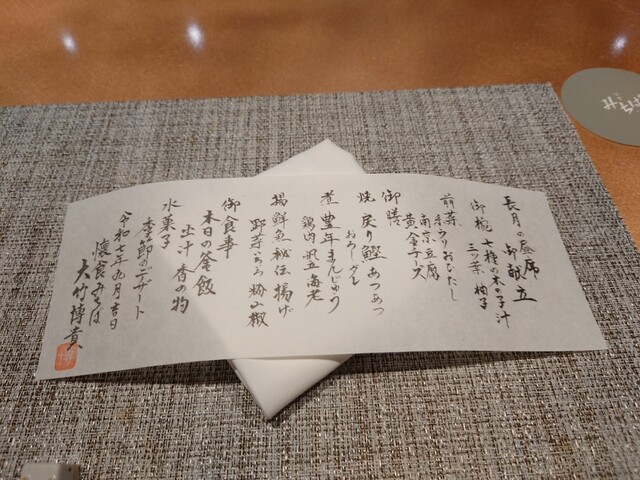 長月の昼席
御献立
御椀 七種の木の子汁
三ツ葉 柚子
前菜
糸うりおひたし
南京豆腐
黄金手
御膳
焼 戻り鰹 あつあつ
おろしダレ
煮 豊年まんじゅう
鶏肉 帆立 海老
揚 鮮魚秘伝揚げ
野菜 粉山椒
御食事
本日の釜飯
止汁 香の物
水菓子
季節のデザート
令和七年九月吉日
懐食みちば
大竹博貴